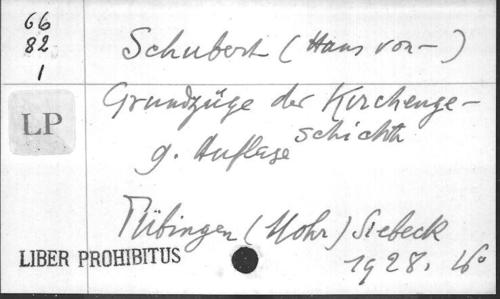 66
82
1
Schubert (Hans von-)
LP
Grundzüge der Kirchenge-
schichte
9. Auflage
Tübingen (Mohr) Siebeck
LIBER PROHIBITUS
1928. 16°